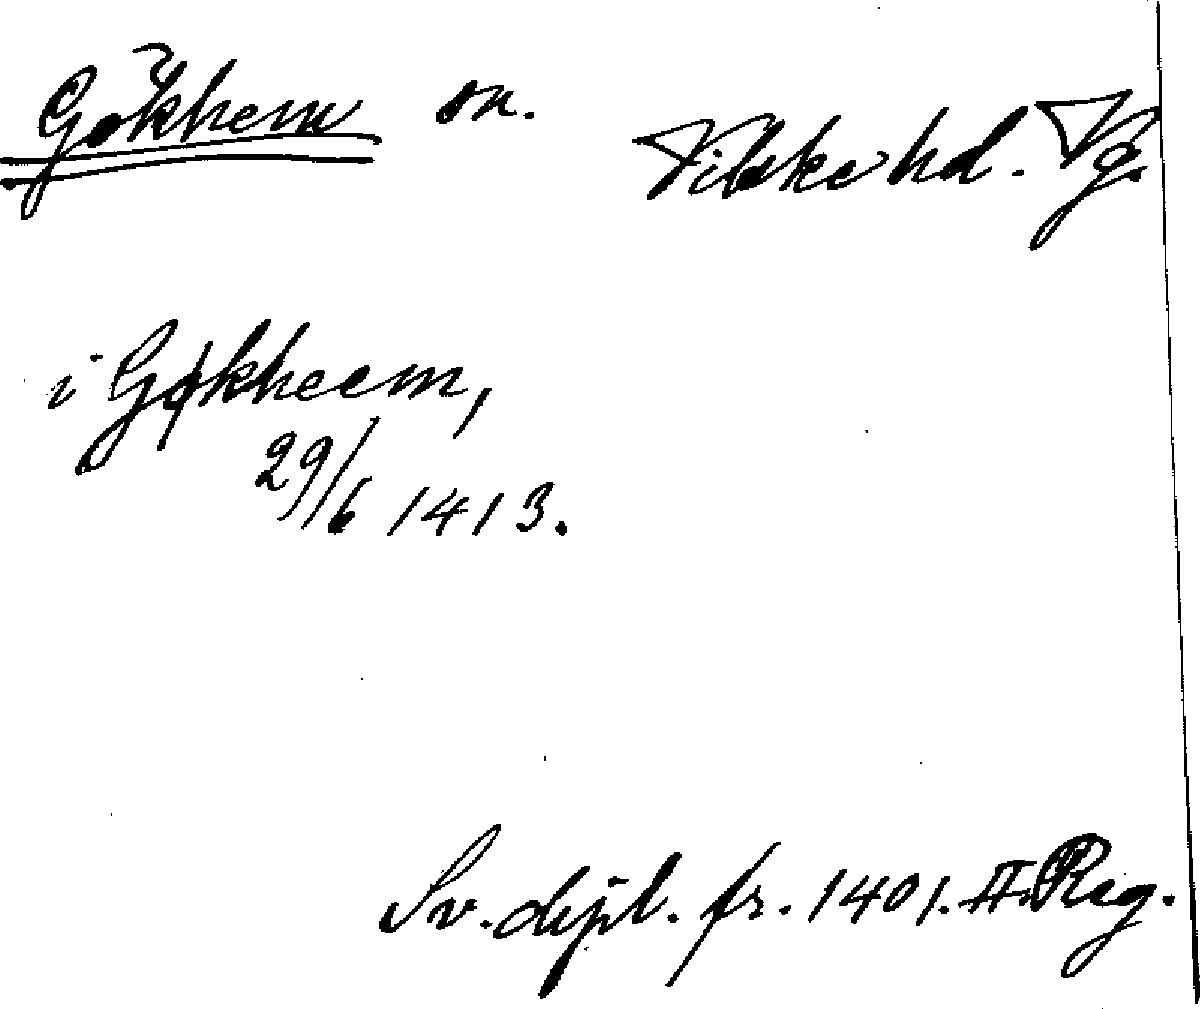 Gökhem sn. Vilske hd. Vg.
i Gøkheem,
29/6 1413.
Sv. dipl. fr. 1401. II. Reg.